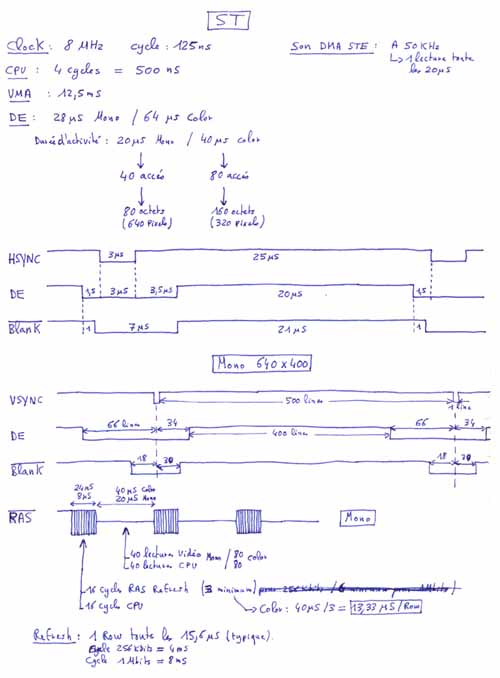 ST
Clock : 8 MHz cycle : 125ns
Son DMA STE : A 50 KHz
↳ 1 lecture toute
les 20µS
CPU : 4 cycles = 500 nS
VMA : 12,5mS
DE : 28µS Mono / 64 µS Color
Durée d'activité : 20µS Mono / 40µS Color
40 accés 80 accés
80 octets 160 octets
(640 Pixels) (320 Pixels)
HSYNC 3µS 25µS
DE 1,5 3µS 3,5µS 20µS 1,5
Blank 1 7µS 21µS 1
Mono 640x400
VSYNC 500 lines 1 line
DE 66 lines 34 400 lines 66 34
Blank 18 18
24µS 40µS Color
8µS 20µS Mono
RAS Mono
40 lecture Vidéo Mono / 80 Color
40 lecture CPU 80
16 cycles RAS Refresh (3 minimum)
16 cycles CPU
Color : 40µS/3 = 13,33 µS/Row
Refresh : 1 Row toute les 15,6µS (typique).
Cycle 256Kbits = 4mS
Cycle 1Mbits = 8mS